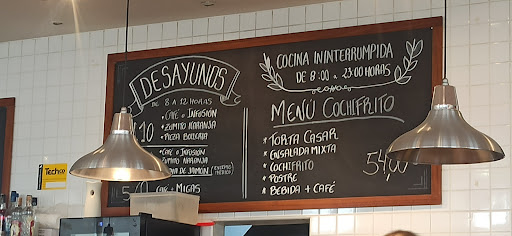 DESAYUNOS
DE 8 A 12 HORAS
* CAFÉ o INFUSIÓN
* ZUMITO NARANJA
* PIEZA BOLLERÍA
* CAFÉ o INFUSIÓN
ZUMITO NARANJA
DE JAMÓN
CAFÉ + MIGAS
COCINA ININTERRUMPIDA
DE 8:00 a 23:00 HORAS
MENÚ COCHIFRITO
* TORTA CASAR
* ENSALADA MIXTA
* COCHIFRITO
* POSTRE
* BEBIDA + CAFÉ
54,00